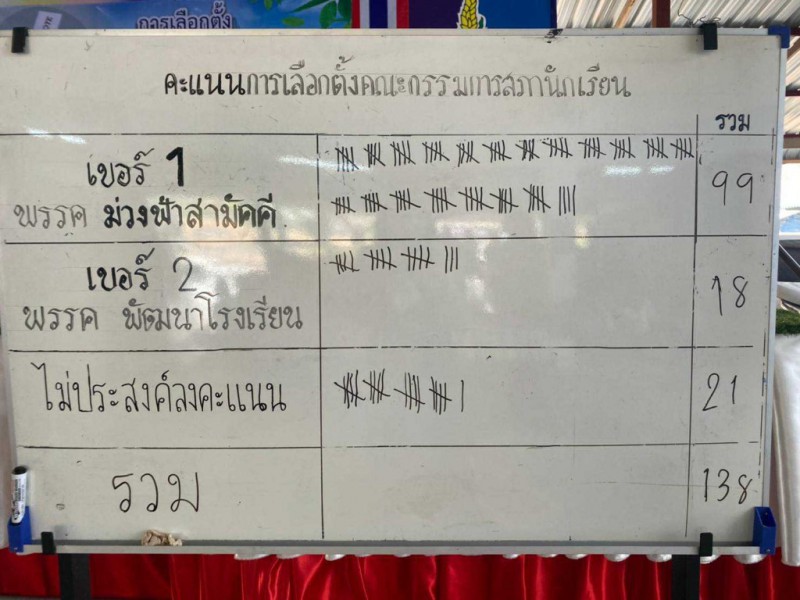 การเลือกตั้ง
คะแนนการเลือกตั้งคณะกรรมการสภานักเรียน
รวม
เบอร์ 1
พรรค ม่วงฟ้าสามัคคี
99
เบอร์ 2
พรรค พัฒนาโรงเรียน
18
ไม่ประสงค์ลงคะแนน
21
รวม
138